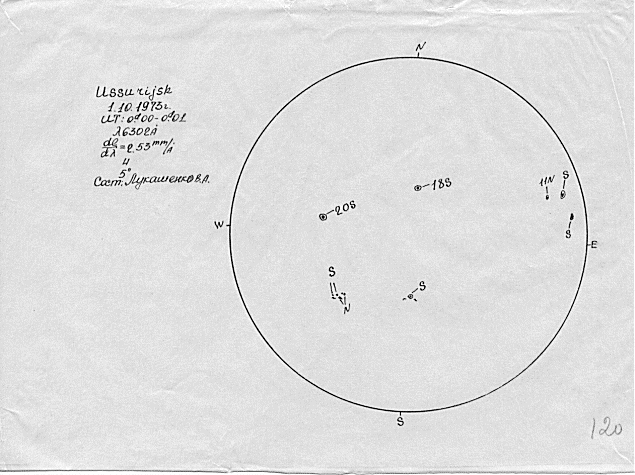 Ussurijsk
1.10.1973г.
UT: 0ʰ00-0ʰ01
λ6302Å
dl/dλ = 2.53 mm/Å
4
5"
Сост: Лукашенко В.А.
N
20S
18S
11N
S
S
W
E
S
N
S
S
120